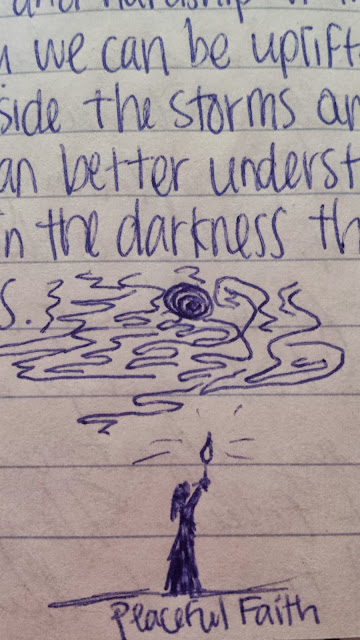 and hardship
we can be uplift
side the storms an
an better underst
in the darkness th
s.
Peaceful Faith